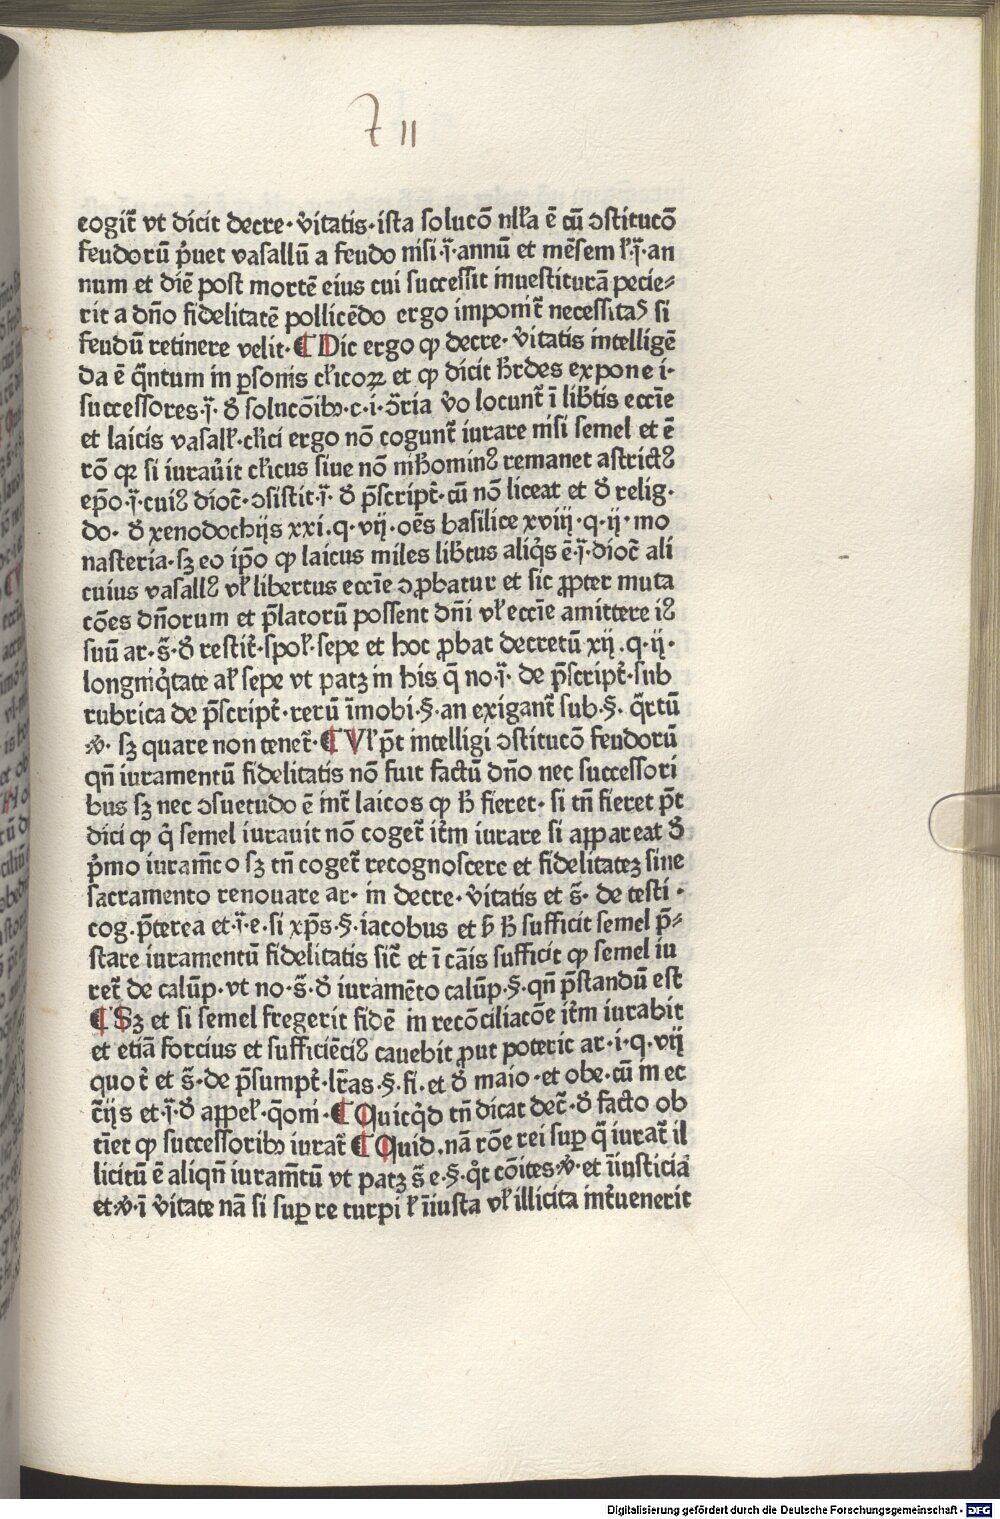 7 11
eogit̄ vt dicit decre· v̓itatis· ista solucō nll̓a ē cū ɔstitucō
feudorū p̓uet vasallū a feudo nisi·i̅·annū et mēsem ł·i̅·an
num et diē post mortē eius cui successit inuestiturā pecie⸗
rit a dn̄o fidelitatē pollicēdo ergo imponit̄ necessitaꝰ si
feudū retinere velit· ¶ Dic ergo ꝙ decre· v̓itatis intelligē
da ē q̄ntum in ꝑsonis cłicoꝝ et ꝙ dicit h̓rdes expone i·
successores·i̅· ꝺ̓ solucōibꝫ·c·i·ɔ̄ria v̓o locunt̄ ī lib̓tis eccīe
et laicis vasałł·cłici ergo nō cogunt̄ iurare nisi semel et ē
rō qꝛ si iurau̓it cłicus siue nō mh̓ominꝰ remanet astrictꝰ
ep̄o·i̅·cuiꝰ dioc̄·ɔsistit·i̅· ꝺ̓ p̄script̄·cū nō liceat et ꝺ̓ relig·
do· ꝺ̓ xenodochijs xxi.q·vij·oēs basilice xviij·q·ij·mo
nasteria·sꝫ eo ip̄o ꝙ laicus miles lib̓tus aliq̓s ē·i̅·dioc̄ ali
cuius vasallꝰ vł libertus eccīe ɔꝓbatur et sic ꝓpter muta
cōes dn̄orum et p̄latorū possent dn̄i vł eccīe amittere iꝰ
suū ar·s̄·ꝺ̓ restit̄·społ·sepe et hoc ꝓbat decretū xij.q·ij·
longniq̓tate ał sepe vt patꝫ in his q̄ no·i̅· de p̄script̄·sub
rubrica de p̄script̄·rerū īmobi·§·an exigant̄ sub·§· q̄rtū
℣· sꝫ quare non tenet̄· ¶ Vł p̄t intelligi ɔstitucō feudorū
qn̄ iuramentū fidelitatis nō fuit factū dn̄o nec successori
bus sꝫ nec ɔsuetudo ē int̄ laicos ꝙ h̓ fieret· si tn̄ fieret p̄t
dici ꝙ q̓ semel iurauit nō coget̄ it̄m iurare si appareat ꝺ̓
p̓mo iuram̄to sꝫ tn̄ coget̄ recognoscere et fidelitateꝫ sine
sacramento renouare ar· in decre· v̓itatis et s̄· de testi·
cog.p̄terea et·i̅·e·si xp̄s·§·iacobus et ƀ h̓ sufficit semel p̄⸗
stare iuramentū fidelitatis sic̄ et ī cāis sufficit ꝙ semel iu
ret̄ de calūp·vt no·s̄·ꝺ̓ iuramēto calūp·§·qn̄ p̄standū est
¶ Sꝫ et si semel fregerit fidē in recōciliacōe it̄m iurabit
et etiā forcius et sufficiēciꝰ cauebit ꝓut poterit ar·i·q·vij
quot̄ et s̄·de p̄sumpt̄·lr̄as·§·fi·et ꝺ̓ maio·et obe·cū in ec
c̄ijs et·i̅·ꝺ̓ appeł·q̄oni· ¶ Quicq̓d tn̄ dicat dec̄·ꝺ̓ facto ob
tīet ꝙ successoribꝫ iurat̄ ¶ Quid·nā rōe rei suꝑ q̄ iurat̄ il
licitū ē aliqn̄ iuram̄tū vt patꝫ s̄ e·§·q̓t cōites·℣·et īiusticia
et·℣·ī v̓itate nā si suꝑ re turpi ł īiusta vł illicita int̄uenerit
Digitalisierung gefördert durch die Deutsche Forschungsgemeinschaft - DFG